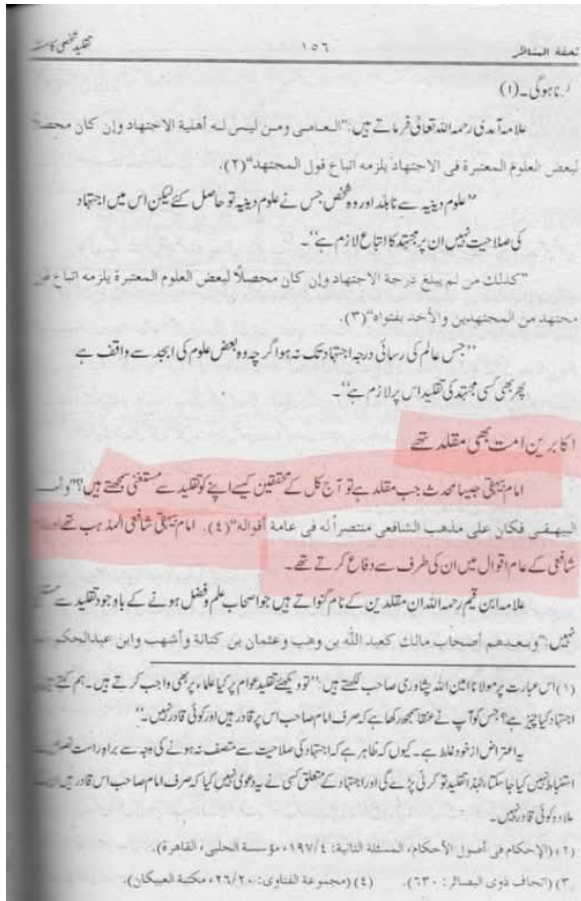 تحفة المناظر ۱۵۶ تقلید شخصی کا مسئلہ
رنا ہوگی۔ (۱)
علامہ آمدی رحمہ اللہ تعالیٰ فرماتے ہیں: "العامی ومن ليس له أهلية الاجتهاد وإن كان محصلاً
لبعض العلوم المعتبرة فی الاجتهاد يلزمه اتباع قول المجتهد" (۲).
"علوم دینیہ سے نابلد اور وہ شخص جس نے علوم دینیہ تو حاصل کئے لیکن اس میں اجتہاد
کی صلاحیت نہیں ان پر مجتہد کا اتباع لازم ہے"۔
"كذلك من لم يبلغ درجة الاجتهاد وإن كان محصلاً لبعض العلوم المعتبرة يلزمه اتباع
مجتهد من المجتهدين والأخذ بفتواه" (۳).
"جس عالم کی رسائی درجہ اجتہاد تک نہ ہو اگرچہ وہ بعض علوم کی ابجد سے واقف ہے
پھر بھی کسی مجتہد کی تقلید اس پر لازم ہے"۔
اکابرین امت بھی مقلد تھے
امام بیہقی جیسا محدث جب مقلد ہے تو آج کل کے محققین کیسے اپنے کو تقلید سے مستغنی سمجھتے ہیں؟
البيهقی فكان على مذهب الشافعی منتصراً له فی عامة أقواله" (٤). امام بیہقی شافعی المذہب تھے
شافعی کے عام اقوال میں ان کی طرف سے دفاع کرتے تھے۔
علامہ ابن قیم رحمہ اللہ ان مقلدین کے نام گنواتے ہیں جو اصحاب علم و فضل ہونے کے باوجود تقلید سے
نہیں: "وبعدهم أصحاب مالك كعبد الله بن وهب وعثمان بن كنانة وأشهب وابن عبدالحكم
(۱) اس عبارت پر مولانا امین اللہ پشاوری صاحب لکھتے ہیں: "تو دیکھئے تقلید عوام پر کیا علماء پر بھی واجب کرتے ہیں۔ ہم کہتے ہیں
اجتہاد کیا چیز ہے؟ جس کو آپ نے عنقا سمجھ رکھا ہے کہ صرف امام صاحب اس پر قادر ہیں اور کوئی قادر نہیں۔"
یہ اعتراض از خود غلط ہے۔ کیوں کہ ظاہر ہے کہ اجتہاد کی صلاحیت سے متصف نہ ہونے کی وجہ سے براہ راست نصوص سے
استنباط نہیں کیا جا سکتا، لہٰذا تقلید تو کرنی پڑے گی اور اجتہاد کے متعلق کسی نے یہ دعویٰ نہیں کیا کہ صرف امام صاحب اس قادر ہیں
علاوہ کوئی قادر نہیں۔
(۲) (الإحكام فی أصول الأحكام، المسئلة الثانية: ٤/١٩٧، مؤسسة الحلبی، القاهرة).
(۳) (اتحاف ذوی البصائر: ٦٣٠). (٤) (مجموعة الفتاوى: ٢٠/٢٦، مكتبة العبيكان).